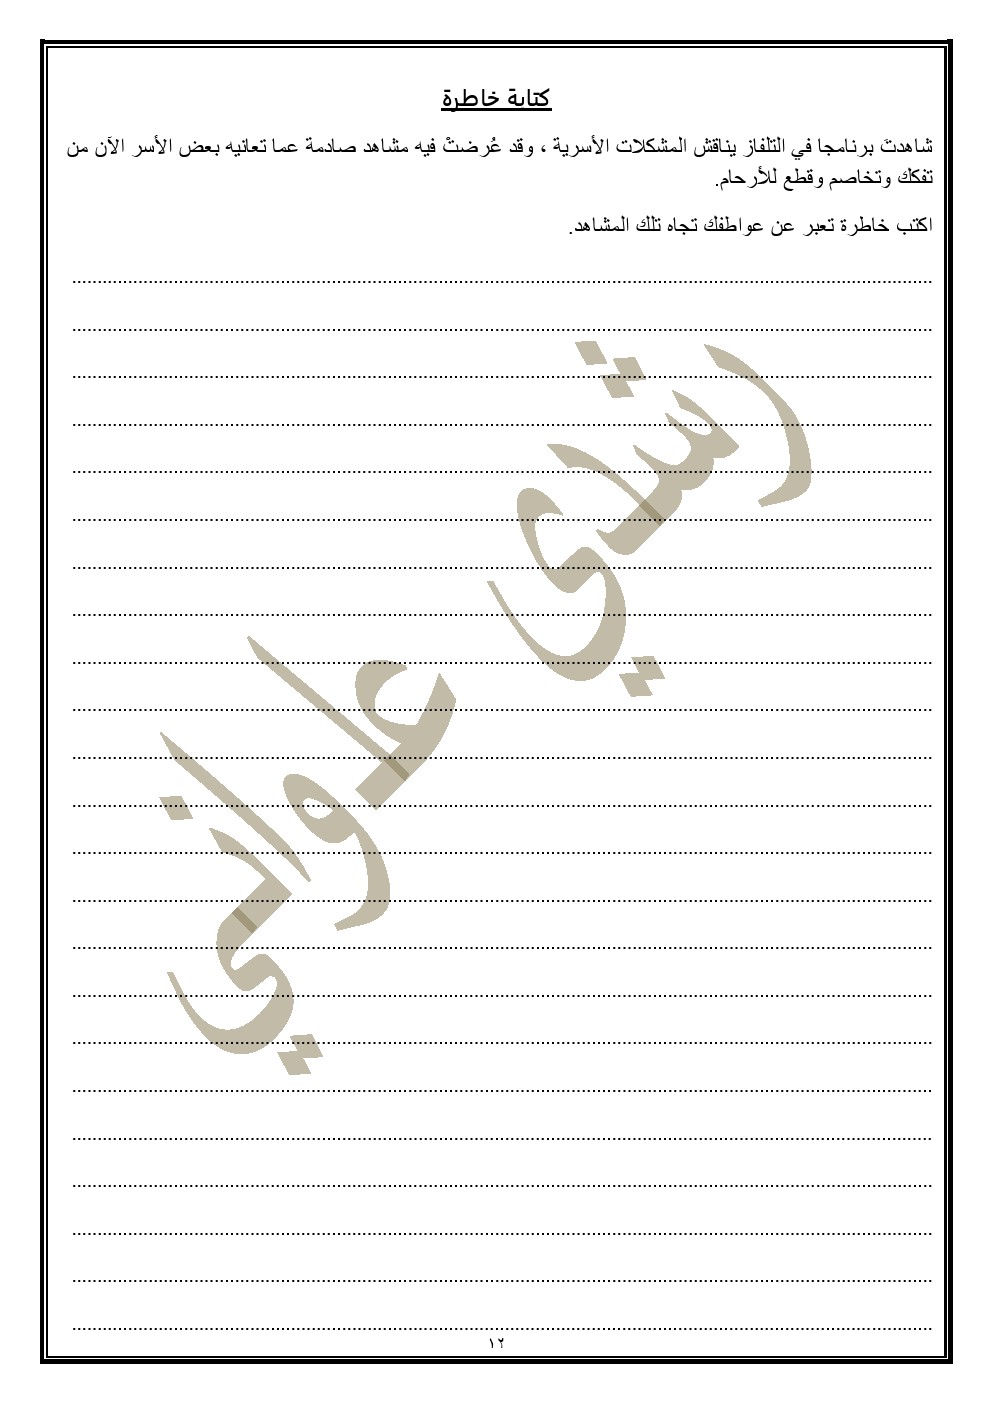 كتابة خاطرة
شاهدتَ برنامجا في التلفاز يناقش المشكلات الأسرية ، وقد عُرضتْ فيه مشاهد صادمة عما تعانيه بعض الأسر الآن من
تفكك وتخاصم وقطع للأرحام.
اكتب خاطرة تعبر عن عواطفك تجاه تلك المشاهد.
رشدي علواني
١٢